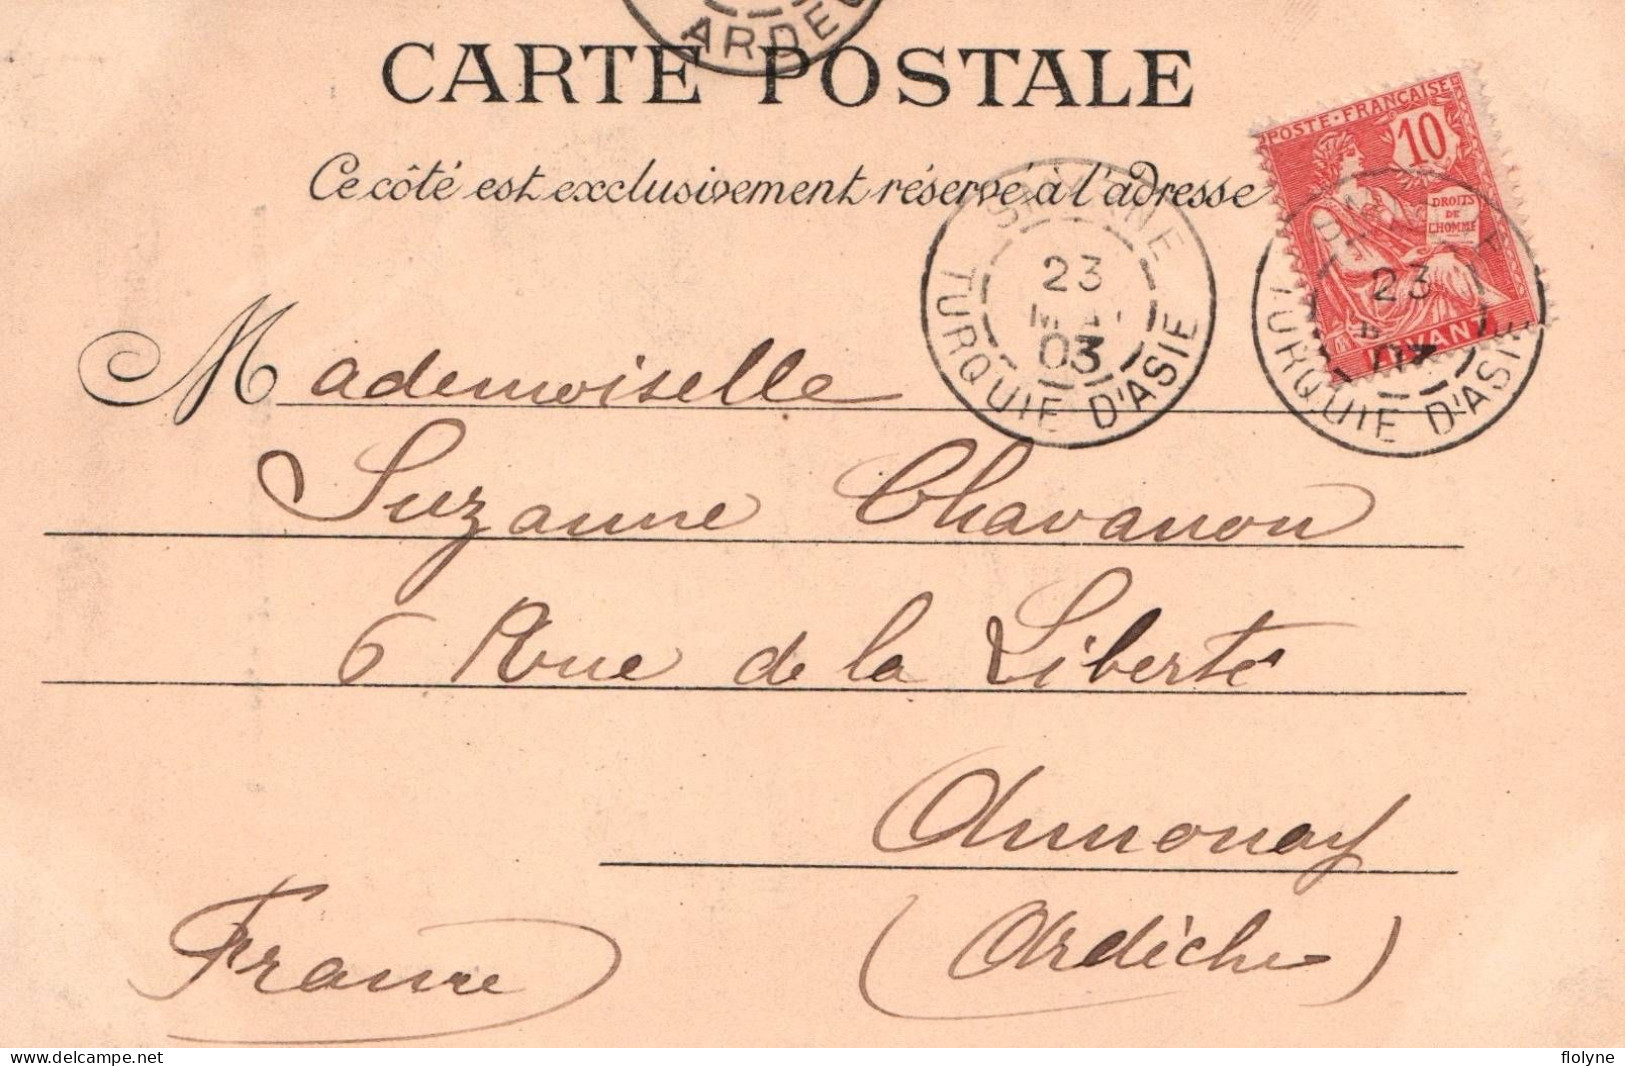 ARDE
CARTE POSTALE
Ce côté est exclusivement réservé à l'adresse
POSTE · FRANÇAISE
10
DROITS
DE
L'HOMME
LEVANT
SMYRNE
23
MAI
03
TURQUIE D'ASIE
23
03
TURQUIE D'ASIE
Mademoiselle
Suzanne Chavanon
6 Rue de la Liberté
Annonay
(Ardèche)
France
flolyne
le-monde-en-cartes-postales.com